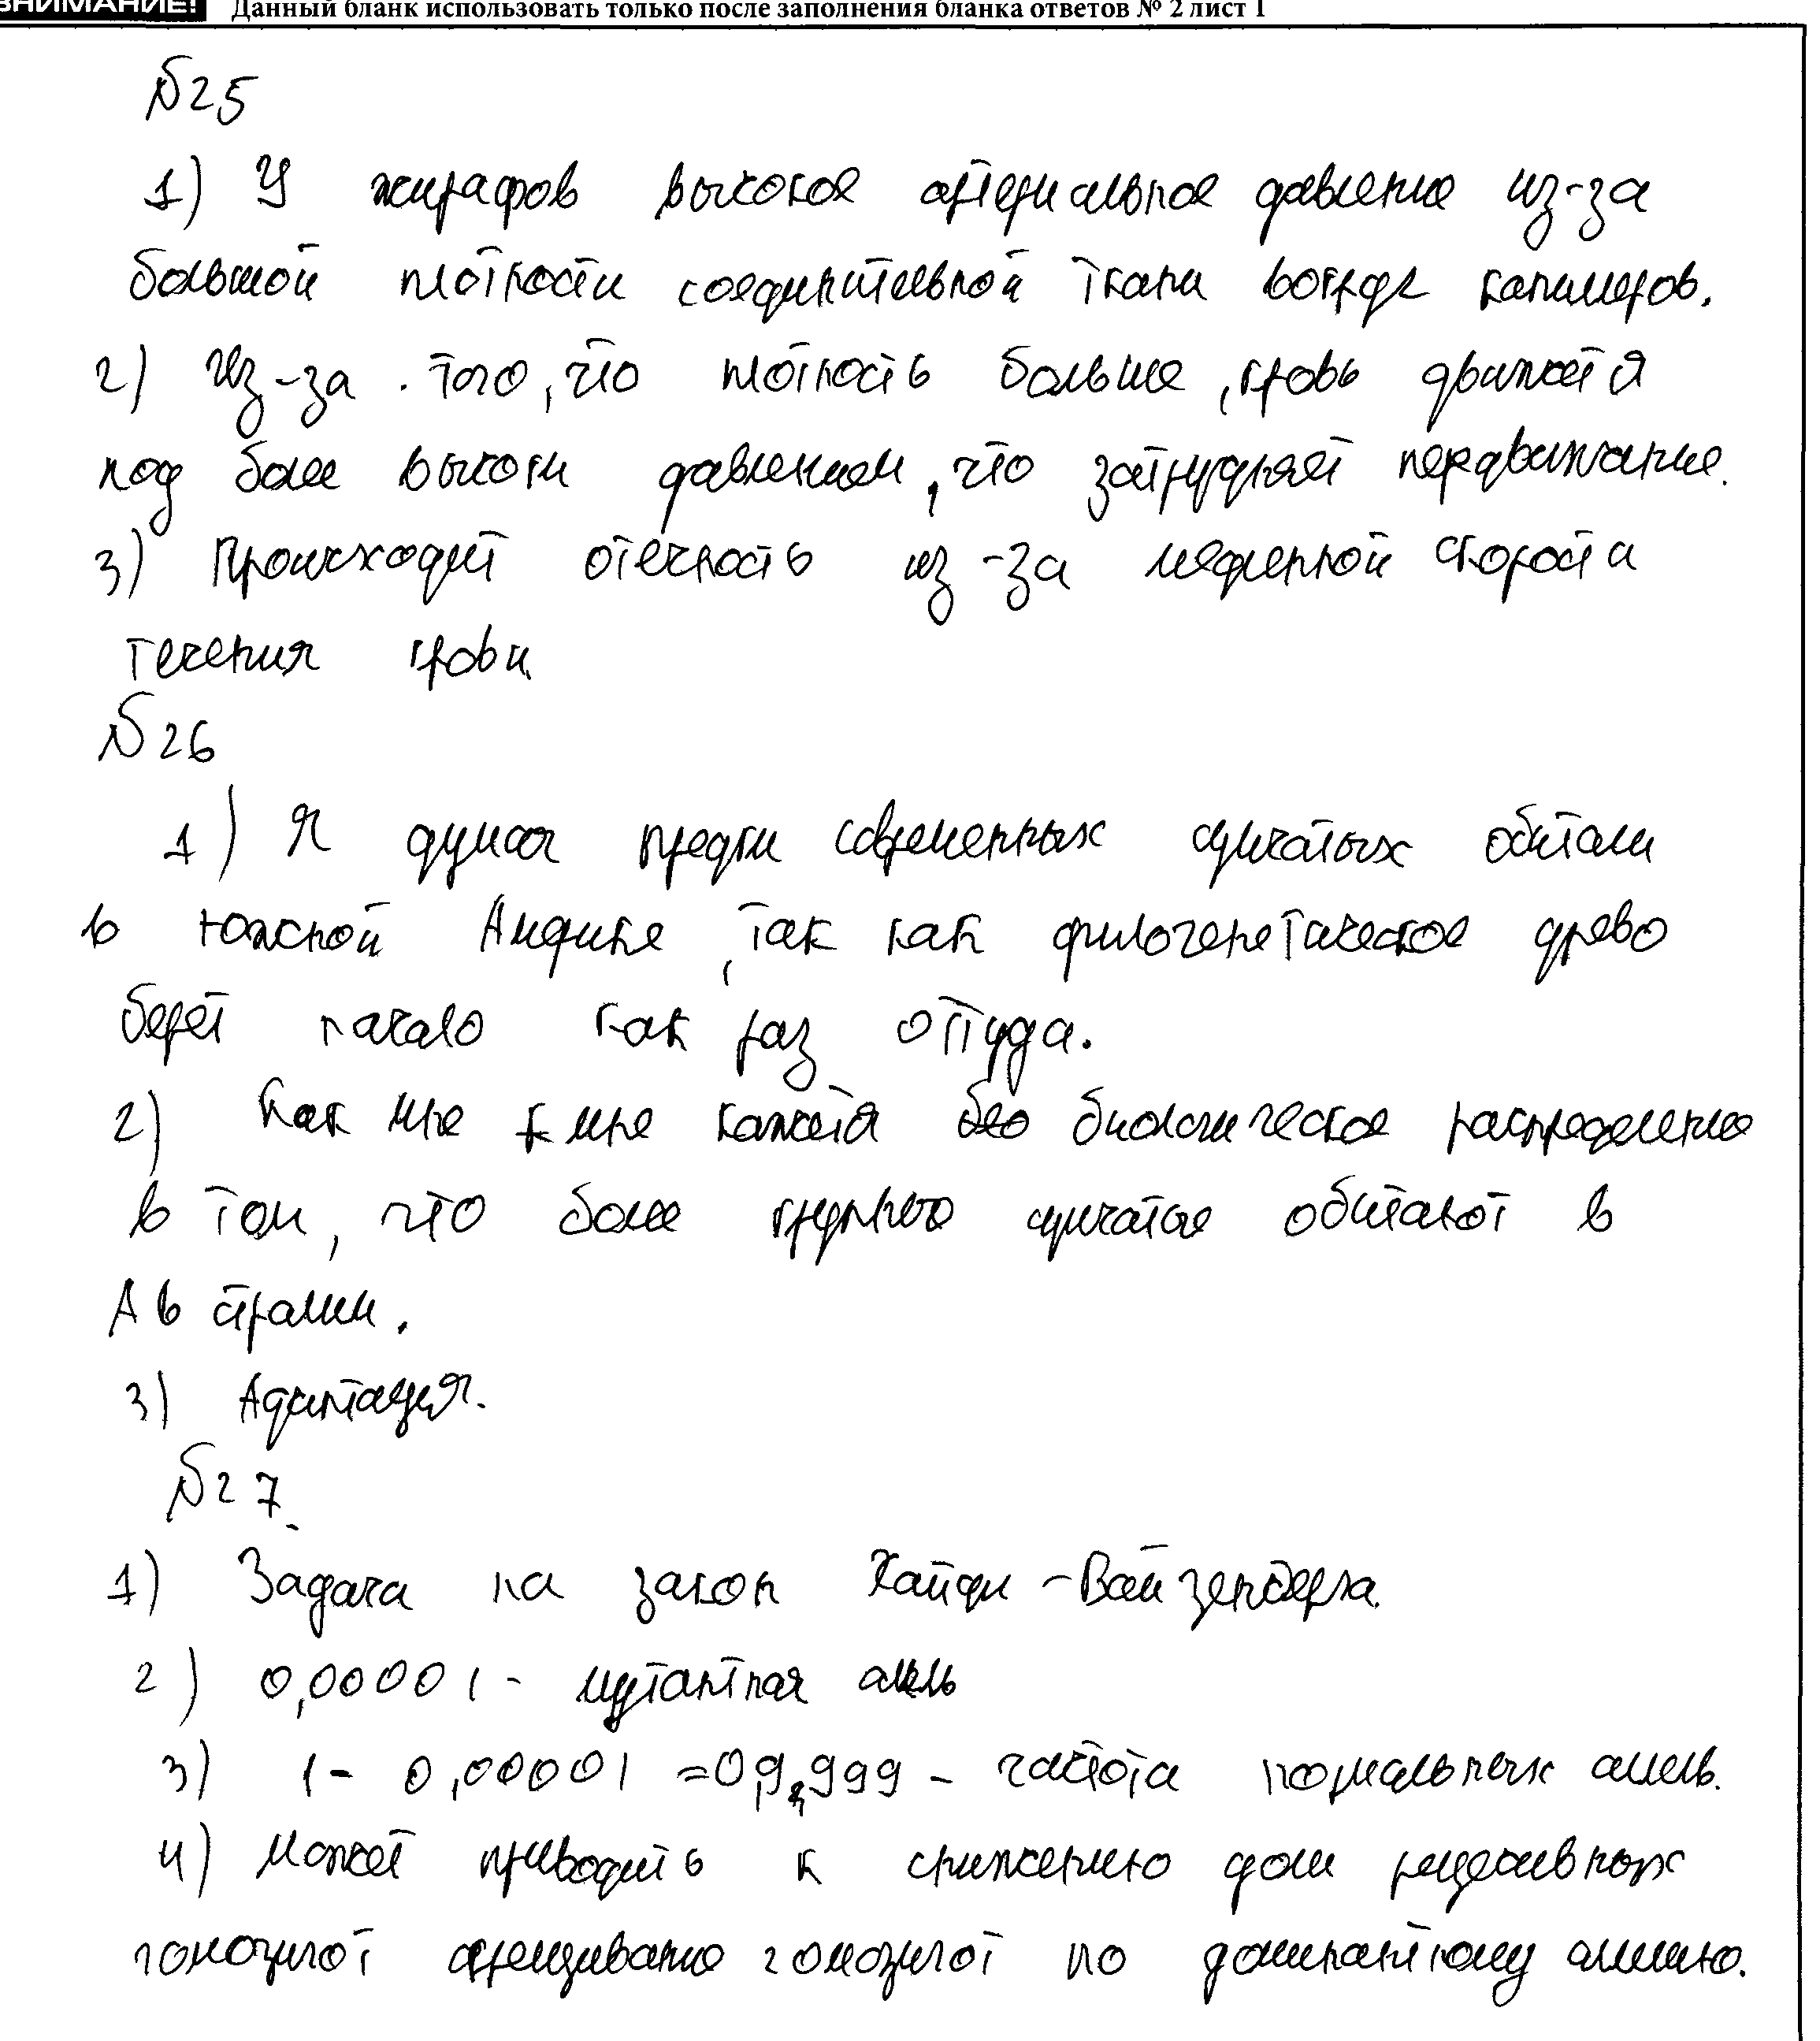 ВНИМАНИЕ! Данный бланк использовать только после заполнения бланка ответов № 2 лист 1
№25
1) У жирафов высокое артериальное давление из-за
большой плотности соединительной ткани вокруг капилляров.
2) Из-за того, что плотность больше, кровь движется
под более высоким давлением, что затрудняет передвижение.
3) Происходит отечность из-за медленной скорости
течения крови
№26
1) Я думаю предки современных сумчатых обитали
в Южной Америке, так как филогенетическое древо
берет начало как раз оттуда.
2) Как мне к мне кажется био биологическое распределение
в том, что более крупные сумчатые обитают в
Австралии.
3) Адаптация.
№27.
1) Задача на закон Харди-Вайзенберга.
2) 0,00001 - мутантная аллель
3) 1 - 0,00001 = 0,9,999 - частота нормальных аллель.
4) Может приводить к снижению доли рецессивных
гомозигот скрещиванию гомозигот по доминантному аллелю.